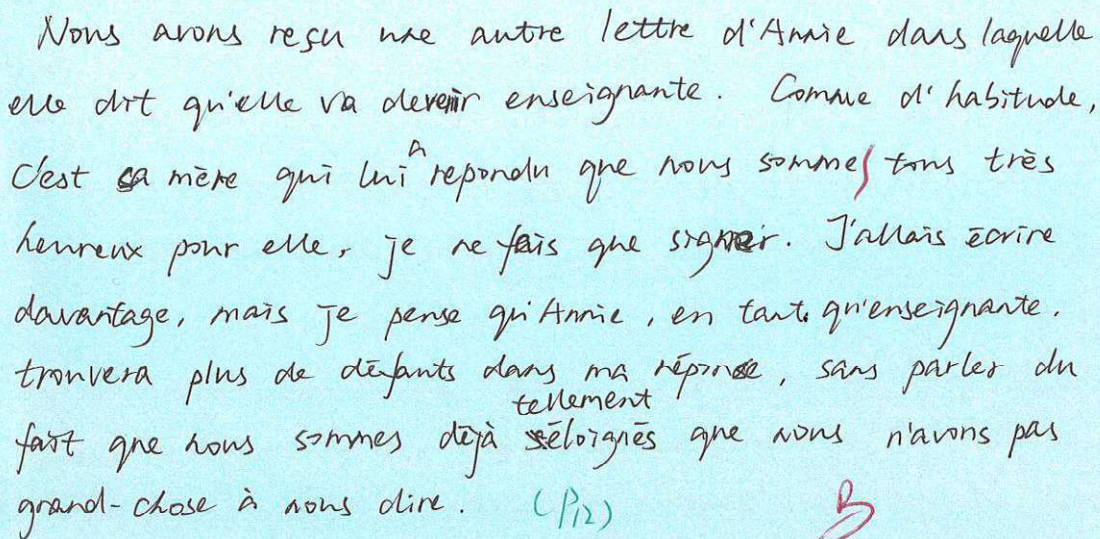 Nous avons reçu une autre lettre d'Annie dans laquelle
elle dit qu'elle va devenir enseignante. Comme d'habitude,
C'est sa mère qui lui a repondu que nous sommes tous très
heureux pour elle, je ne fais que signer. J'allais écrire
davantage, mais je pense qu'Annie, en tant qu'enseignante.
trouvera plus de défauts dans ma réponse, sans parler du
fait que nous sommes déjà tellement éloignés que nous n'avons pas
grand-chose à nous dire. (P12) B